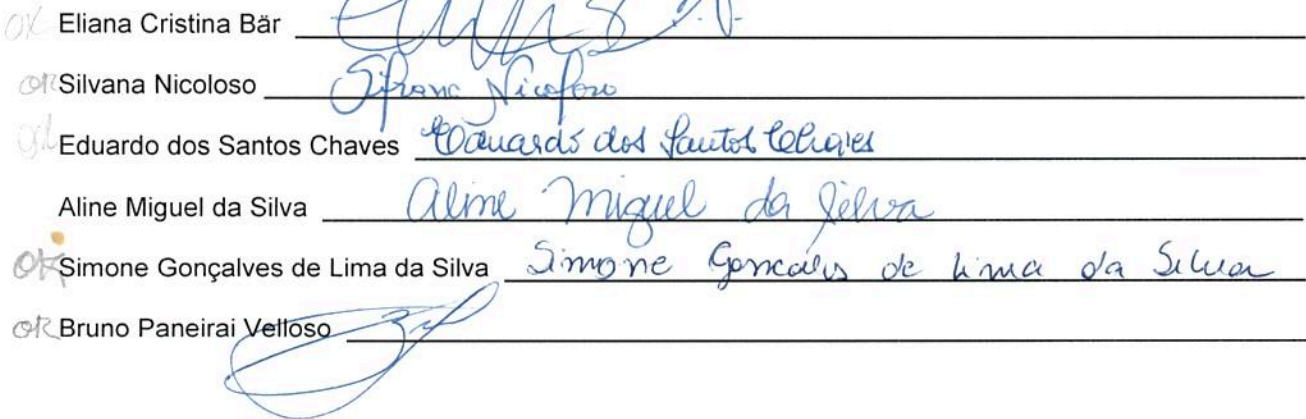 OK Eliana Cristina Bär
OK Silvana Nicoloso Silvana Nicoloso
OK Eduardo dos Santos Chaves Eduardo dos Santos Chaves
Aline Miguel da Silva Aline Miguel da Silva
OK Simone Gonçalves de Lima da Silva Simone Goncalves de Lima da Silva
OK Bruno Paneirai Velloso